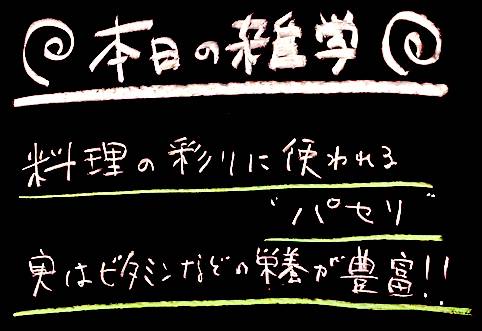 本日の雑学
料理の彩りに使われる
"パセリ"
実はビタミンなどの栄養が豊富!!